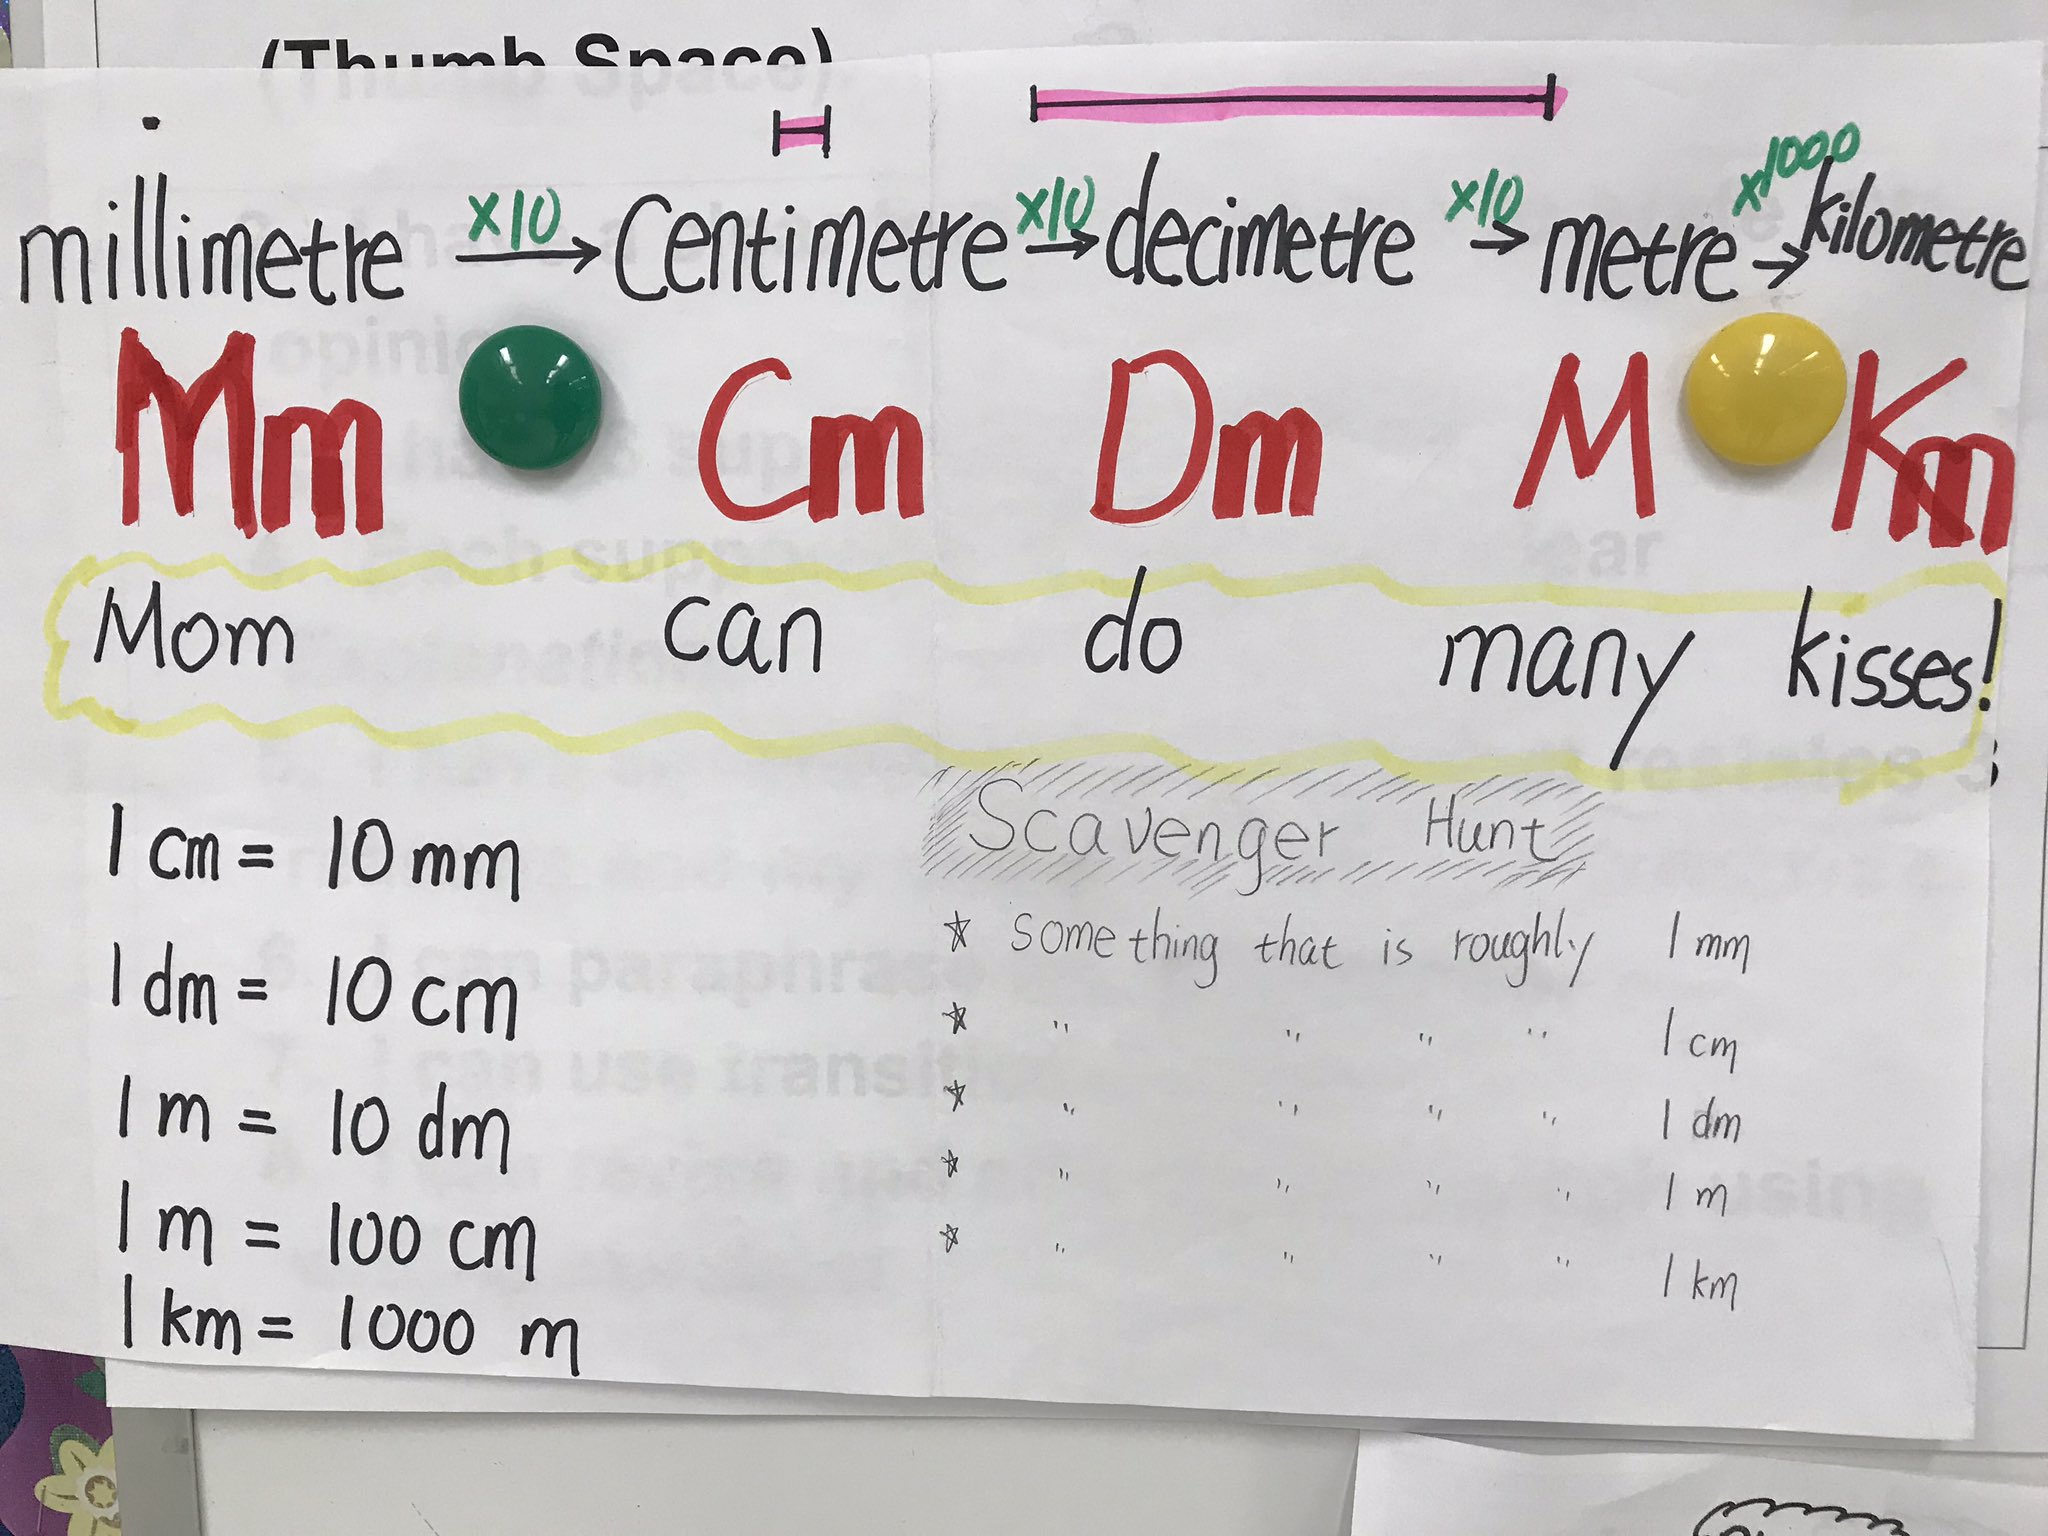 (Thumb Space)
millimetre x10 → Centimetre x10 → decimetre x10 → metre x1000 → kilometre
Mm Cm Dm M Km
Mom can do many kisses!
Scavenger Hunt
1 cm = 10 mm
1 dm = 10 cm
1 m = 10 dm
1 m = 100 cm
1 km = 1000 m
☆ Something that is roughly 1 mm
☆ " " " " 1 cm
☆ " " " " 1 dm
☆ " " " " 1 m
☆ " " " " 1 km